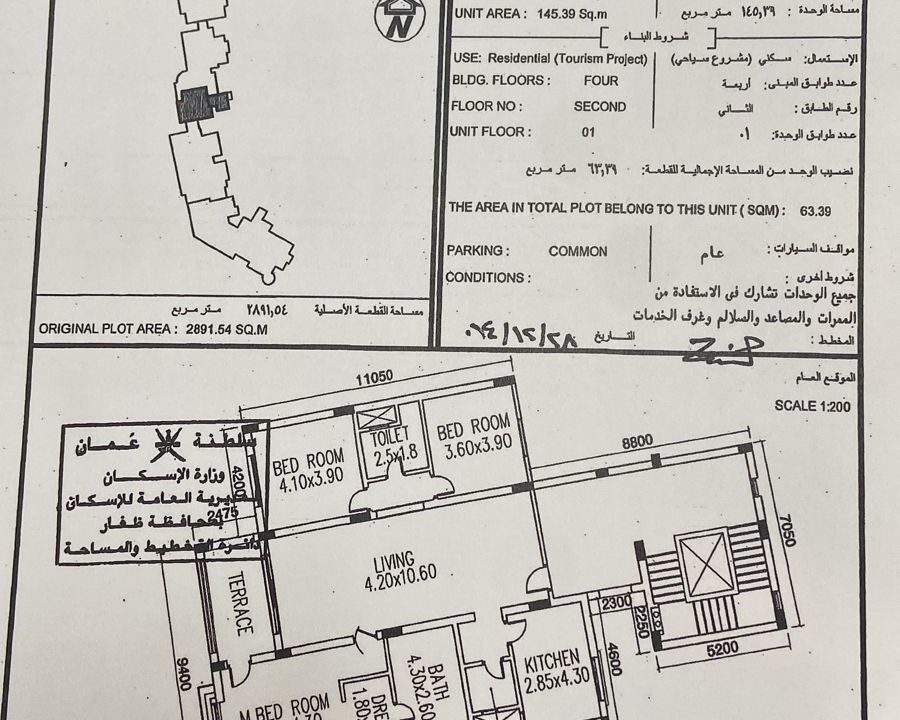 N
UNIT AREA : 145.39 Sq.m
مساحة الوحدة : ١٤٥,٣٩ متر مربع
شروط البناء
USE: Residential (Tourism Project)
الإستعمال: سكني (مشروع سياحي)
BLDG. FLOORS : FOUR
عدد طوابق المبنى: أربعة
FLOOR NO : SECOND
رقم الطابق : الثاني
UNIT FLOOR : 01
عدد طوابق الوحدة: ٠١
نصيب الوحد من المساحة الإجمالية للقطعة: ٦٣,٣٩ متر مربع
THE AREA IN TOTAL PLOT BELONG TO THIS UNIT ( SQM) : 63.39
PARKING : COMMON
مواقف السيارات : عام
CONDITIONS :
شروط أخرى :
جميع الوحدات تشارك في الاستفادة من
الممرات والمصاعد والسلالم وغرف الخدمات
المخطط :
التاريخ
مساحة القطعة الأصلية ٢٨٩١,٥٤ متر مربع
ORIGINAL PLOT AREA : 2891.54 SQ.M
الموقع العام
SCALE 1:200
سلطنة عمان
وزارة الإسكان
المديرية العامة للإسكان
بمحافظة ظفار
دائرة التخطيط والمساحة
11050
BED ROOM
4.10x3.90
TOILET
2.5x1.8
BED ROOM
3.60x3.90
8800
4200
2475
7050
LIVING
4.20x10.60
TERRACE
2300
2250
5200
9400
4600
KITCHEN
2.85x4.30
BATH
4.30x2.60
M.BED ROOM